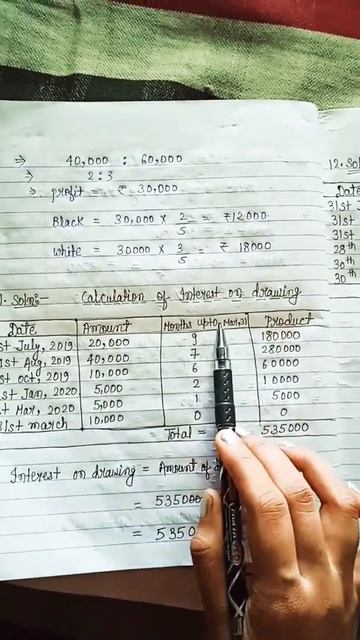 ⇒ 40,000 : 60,000
⇒ 2:3
⇒ profit = ₹ 30,000
Black = 30,000 × 2/5 = ₹12000
white = 30000 × 3/5 = ₹ 18000
Soln:- Calculation of Interest on drawing
Date Amount Months upto Mar,31 Product
st July, 2019 20,000 9 180000
1st Aug, 2019 40,000 7 280000
st oct, 2019 10,000 6 60000
st Jan, 2020 5,000 2 10000
st Mar, 2020 5,000 1 5000
31st march 10,000 0 0
Total = 535000
Interest on drawing = Amount of
= 535000
= 5350
12. Sol
Date
31st
31st
31st
28th
30th
30th